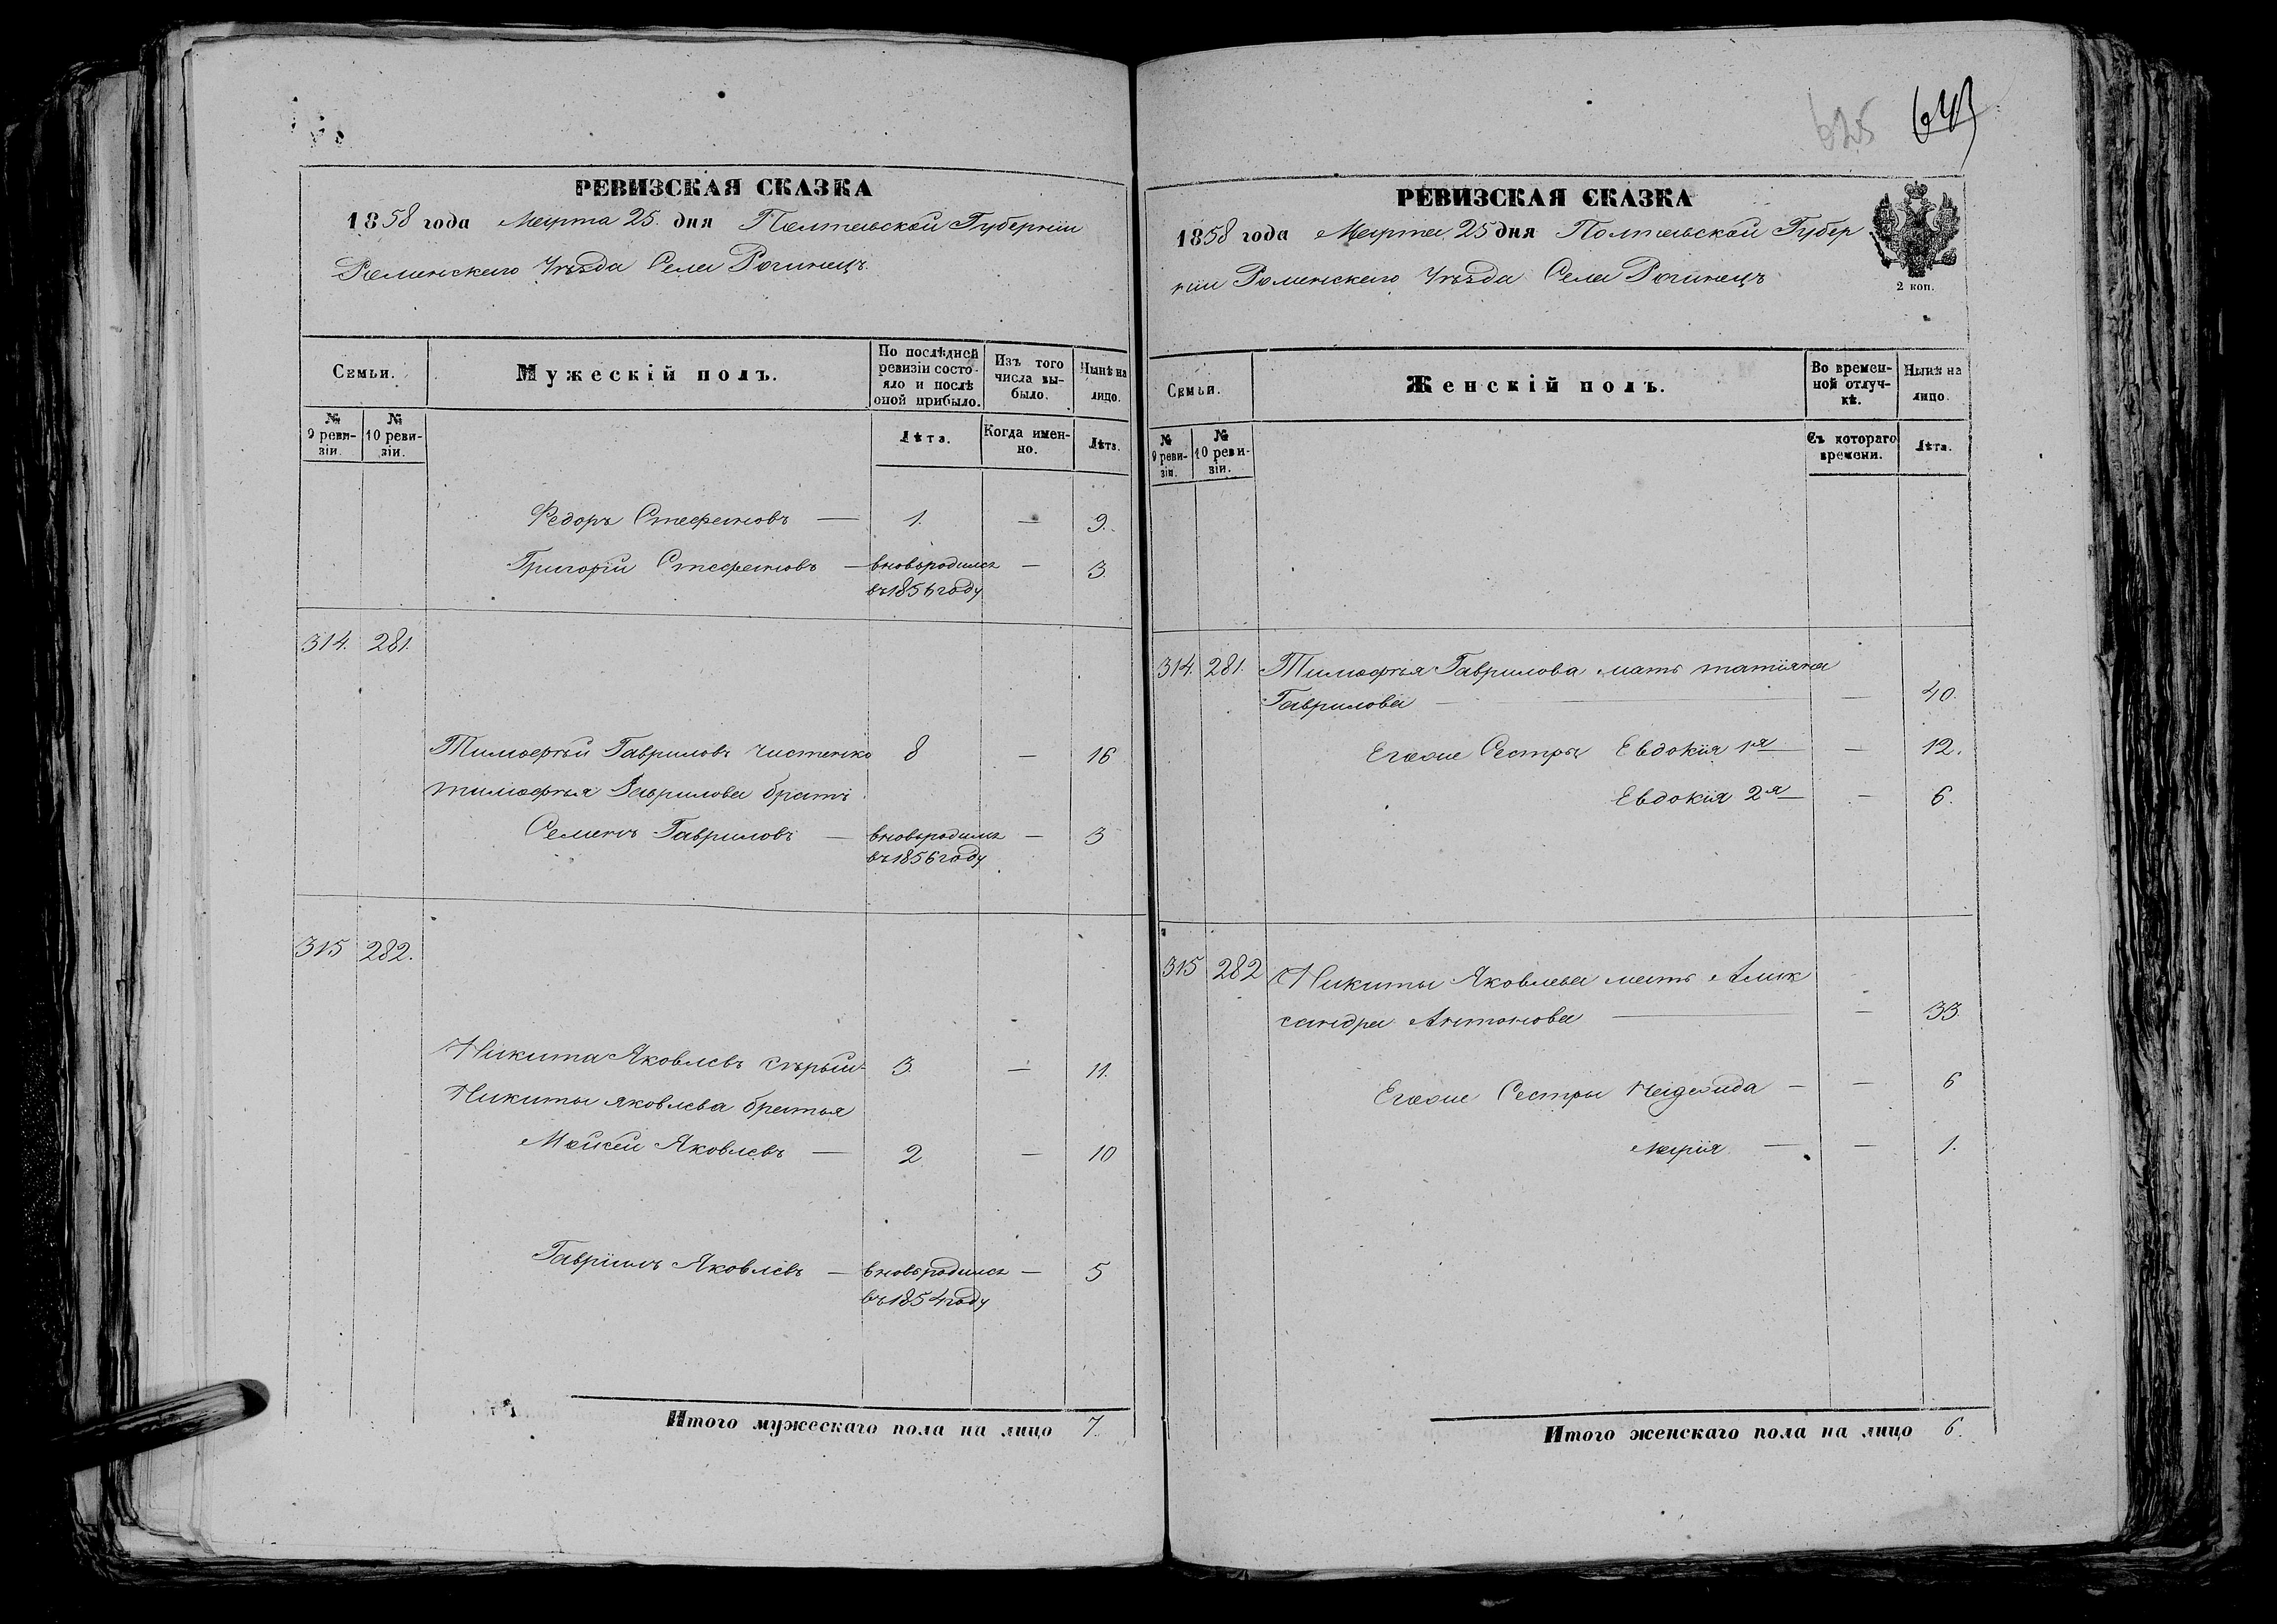 РЕВИЗСКАЯ СКАЗКА
1858 года Марта 25. дня Полтавской Губерніи
Роменскаго Уѣзда Села Рогинецъ.
Семьи.
Мужескій полъ.
По послѣдней ревизіи состояло и послѣ оной прибыло.
Изъ того числа выбыло.
Нынѣ на лицо.
№ 9 ревизіи.
№ 10 ревизіи.
Лѣта.
Когда именно.
Лѣта.
Федоръ Стефановъ — 1. — 9.
Григорій Стефановъ — вновьродился — 3
въ1856году
314. 281.
Тимофѣй Гавриловъ Чистенко 8 — 16
тимофѣя Гаврилова братъ
Семенъ Гавриловъ — вновьродился — 3
въ1856году
315 282.
Никита Яковлевъ Сѣрый 3. — 11.
Никиты яковлева братья
Мойсей Яковлевъ — 2 — 10
Гавріилъ Яковлевъ — вновьродился — 5
въ1854году
Итого мужескаго пола на лицо 7.
625
РЕВИЗСКАЯ СКАЗКА
1858 года Марта 25 дня Полтавской Губер
ніи Роменскаго Уѣзда Села Рогинецъ
2 коп.
Семьи.
Женскій полъ.
Во временной отлучкѣ.
Нынѣ на лицо.
№ 9 ревизіи.
№ 10 ревизіи.
Съ котораго времени.
Лѣта.
314. 281. Тимофѣя Гаврилова мать татіяна
Гаврилова — — 40.
Егоже Сестры Евдокія 1я — 12.
Евдокія 2я — 6.
315 282 Никиты Яковлева мать Алик
сандра Антонова — — 33.
Егоже Сестры — — 6
марія — — 1.
Итого женскаго пола на лицо 6.